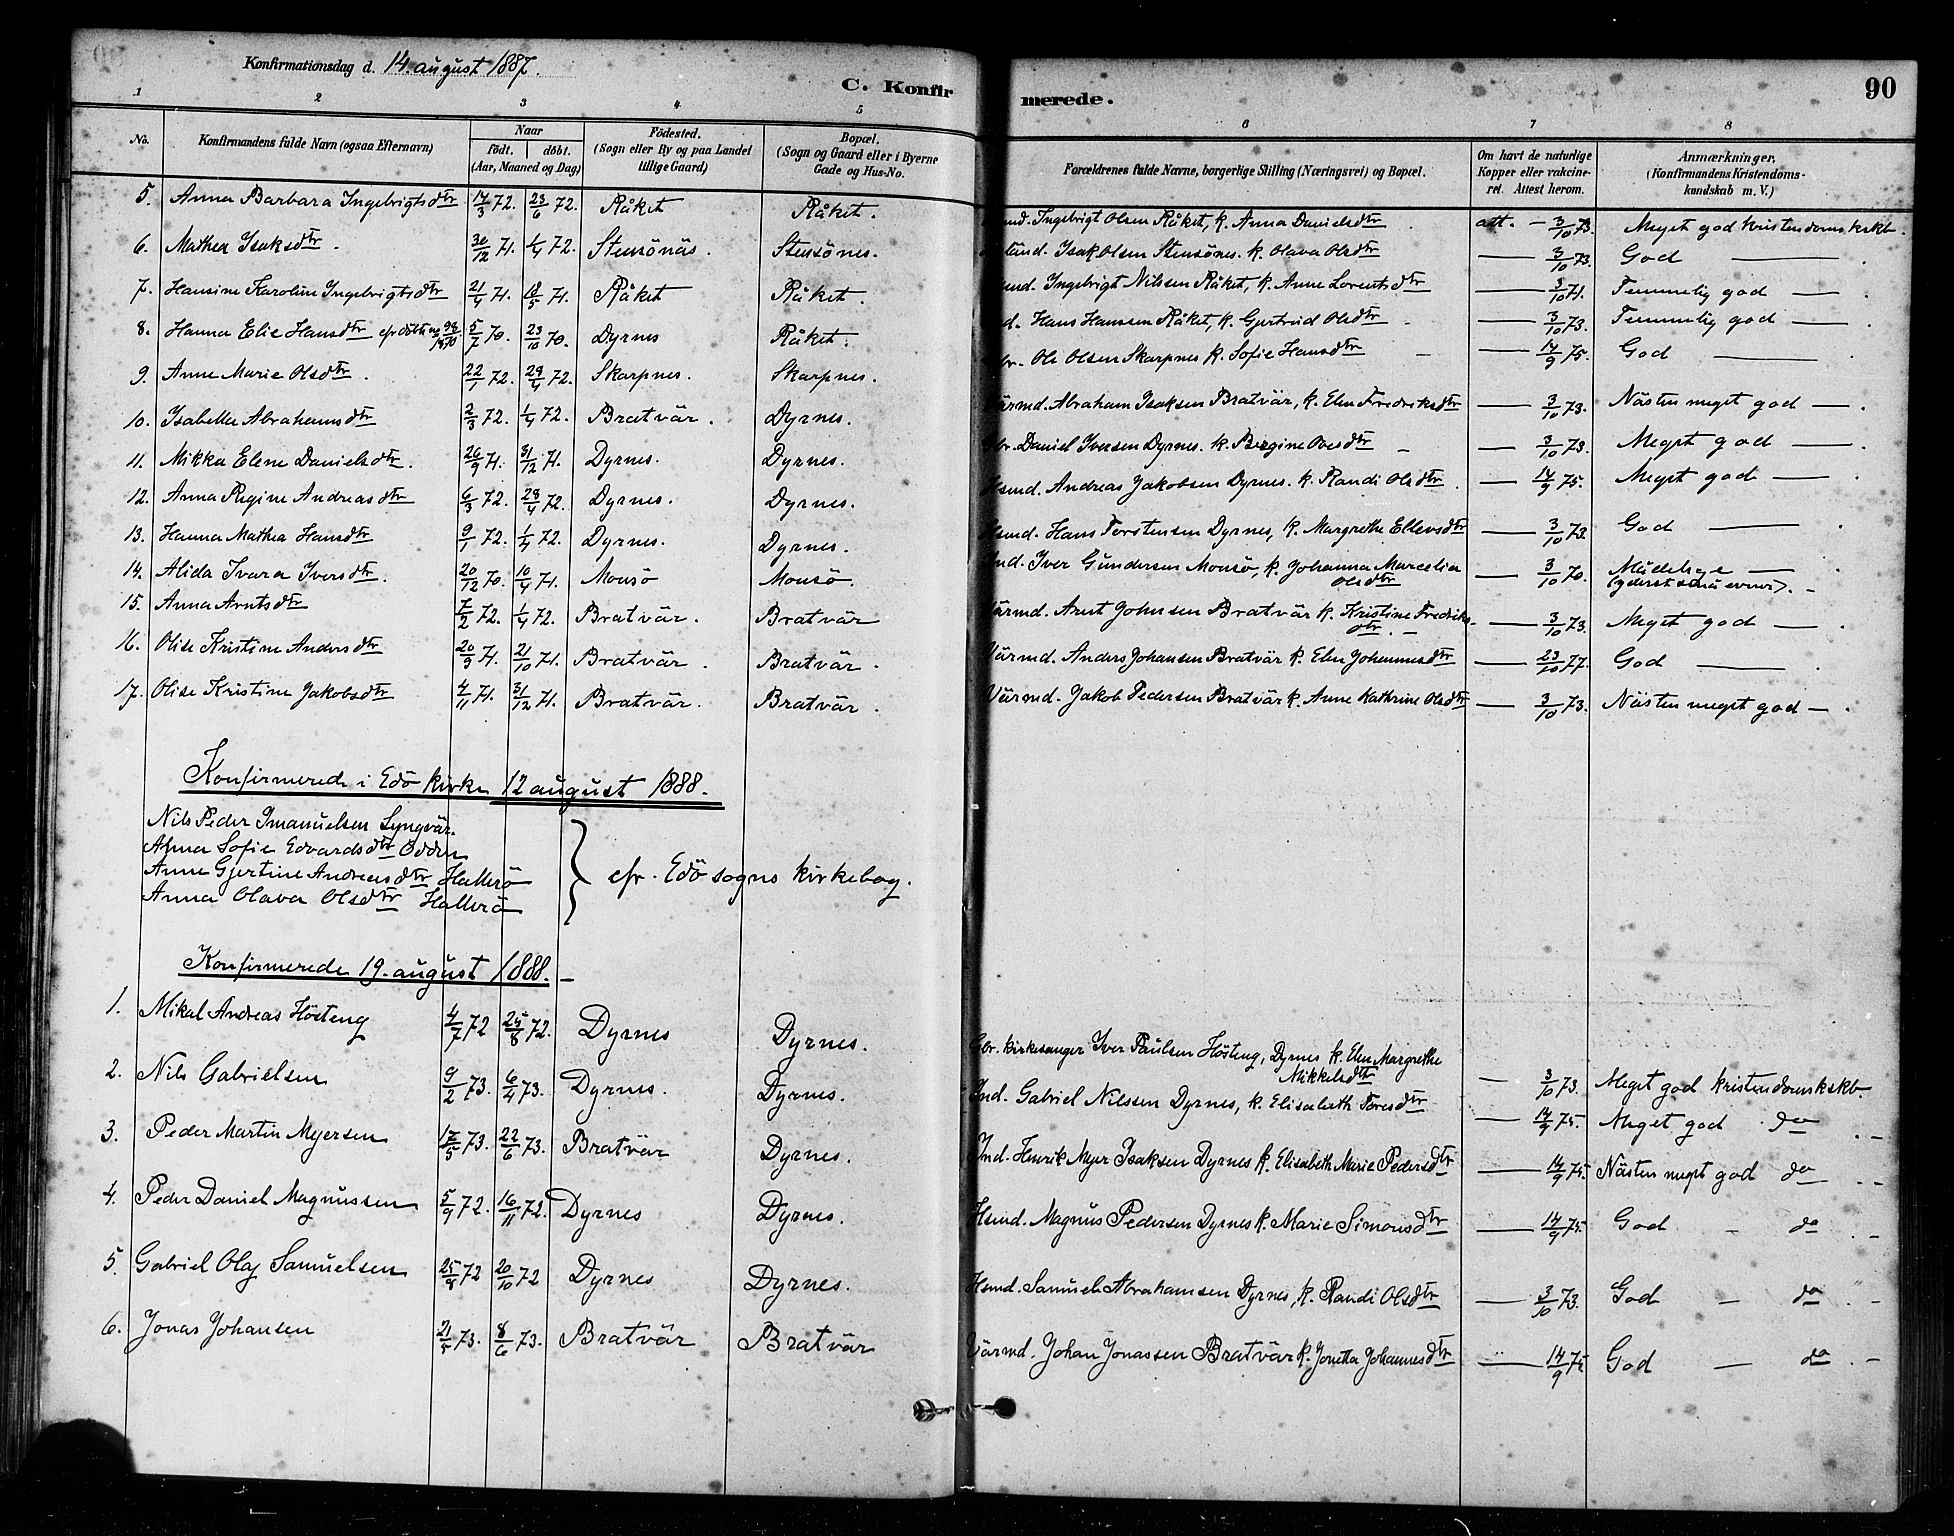 Konfirmationsdag d. 14. august 1887.
C. Konfirmerede.
90
1 2 3 4 5 6 7 8
No. Konfirmandens fulde Navn (ogsaa Efternavn) Naar født. døbt. (Aar, Maaned og Dag) Födested. (Sogn eller By og paa Landet tillige Gaard) Bopæl. (Sogn og Gaard eller i Byerne Gade og Hus-No. Forældrenes fulde Navne, borgerlige Stilling (Næringsvei) og Bopæl. Om havt de naturlige Kopper eller vaccineret. Attest herom. Anmærkninger, (Konfirmandens Kristendomskundskab m. V.)
5. Anna Barbara Ingebrigtsdtr 14/3 72. 23/6 72. Råket Råket. Ingebrigt Olsen Råket, k. Anna Danielsdtr att. - 3/10 73. Meget god kristendomskskb.
6. Mathea Isaksdtr. 30/12 71. 1/4 72. Stensönäs. Stensönes. Isak Olsen Stensönes. k. Olava Olsdtr — 3/10 73. God —
7. Hansine Karoline Ingebrigtsdtr 21/4 71. 18/5 71. Råket Råket. Ingebrigt Nilsen Råket, k. Anne Lorentsdtr — 3/10 71. Temmelig god —
8. Hanna Elie Hansdtr 5/7 70. 23/10 70. Dyrnes Råket. Hans Hanssen Råket, k. Gjertrud Olsdtr — 3/10 73. Temmelig god —
9. Anne Marie Olsdtr. 22/1 72. 29/4 72. Skarpnes. Skarpnes. Ole Olsen Skarpnes k. Sofie Hansdtr — 14/9 75. God —
10. Isabella Abrahamsdtr 2/3 72. 1/4 72. Bratvär. Dyrnes. Abraham Isaksen Bratvär, k. Elen Fredriksdtr — 3/10 73. Nästen meget god —
11. Mikka Elene Danielsdtr. 26/9 71. 31/12 71. Dyrnes. Dyrnes. Daniel Iversen Dyrnes. k. Bergine Ovesdtr — 3/10 73. Meget god —
12. Anna Regine Andreasdtr 6/3 72. 28/4 72. Dyrnes. Dyrnes. Hsmd. Andreas Jakobsen Dyrnes. k. Randi Olsdtr. — 14/9 75. Meget god —
13. Hanna Mathea Hansdtr 9/1 72. 1/4 72. Dyrnes. Dyrnes. Hsmd. Hans Torstensen Dyrnes, k. Margrethe Ellevsdtr — 3/10 73. God —
14. Alida Ivara Iversdtr. 20/12 70. 10/4 71. Monsö Monsö. Ind. Iver Gundersen Monsö, k. Johanna Marcelia Olsdtr — 3/10 70. Mådelige — (yderst små evner). -
15. Anna Arntsdtr 7/2 72. 1/4 72. Bratvär. Bratvär Värmd. Arnt Johnsen Bratvär k. Kristine Fredriksdtr. — 3/10 73. Meget god —
16. Olise Kristine Andersdtr 20/9 71. 21/10 71. Bratvär. Bratvär. Värmd. Anders Johansen Bratvär k. Elen Johannesdtr — 23/10 77. God —
17. Olise Kristine Jakobsdtr 4/11 71. 31/12 71. Bratvär. Bratvär. Värmd. Jakob Pedersen Bratvär k. Anne Kathrine Olsdtr — 3/10 73. Nästen meget god —
Konfirmerede i Edö kirke 12 august 1888.
Nils Peder Imanuelsen Lyngvär.
Anna Sofie Edvardsdtr Odden
Anne Gjertine Andreasdtr Hallerö
Anna Olava Olsdtr Hallerö
cfr. Edö sogns kirkebog.
Konfirmerede 19. august 1888. -
1. Mikal Andreas Hösteng 4/7 72 25/8 72. Dyrnes Dyrnes. Gbr. kirkesanger Iver Paulsen Hösteng, Dyrnes k. Elen Margrethe Mikkelsdtr — 3/10 73. Meget god kristendomskskb.
2. Nils Gabrielsen 9/2 73. 6/4 73. Dyrnes. Dyrnes. Ind. Gabriel Nilssen Dyrnes, k. Elisabeth Toresdtr — 14/9 75. Meget god do
3. Peder Martin Myersen 17/5 73. 22/6 73. Bratvär Dyrnes. Ind. Henrik Myer Isaksen Dyrnes k. Elisabeth Marie Pedersdtr — 14/9 75. Nästen meget god do
4. Peder Daniel Magnussen 5/9 72. 16/11 72. Dyrnes Dyrnes. Hsmd. Magnus Pedersen Dyrnes k. Marie Simonsdtr — 14/9 75. God - do
5. Gabriel Olaj Samuelsen 25/8 72 20/10 72 Dyrnes Dyrnes. Hsmd. Samuel Abrahamsen Dyrnes, k. Randi Olsdtr — 3/10 73. God - do
6. Jonas Johansen 21/5 73. 8/6 73. Bratvär Bratvär Värmd. Johan Jonassen Bratvär k. Jonetta Johannesdtr — 14/9 75. God — do